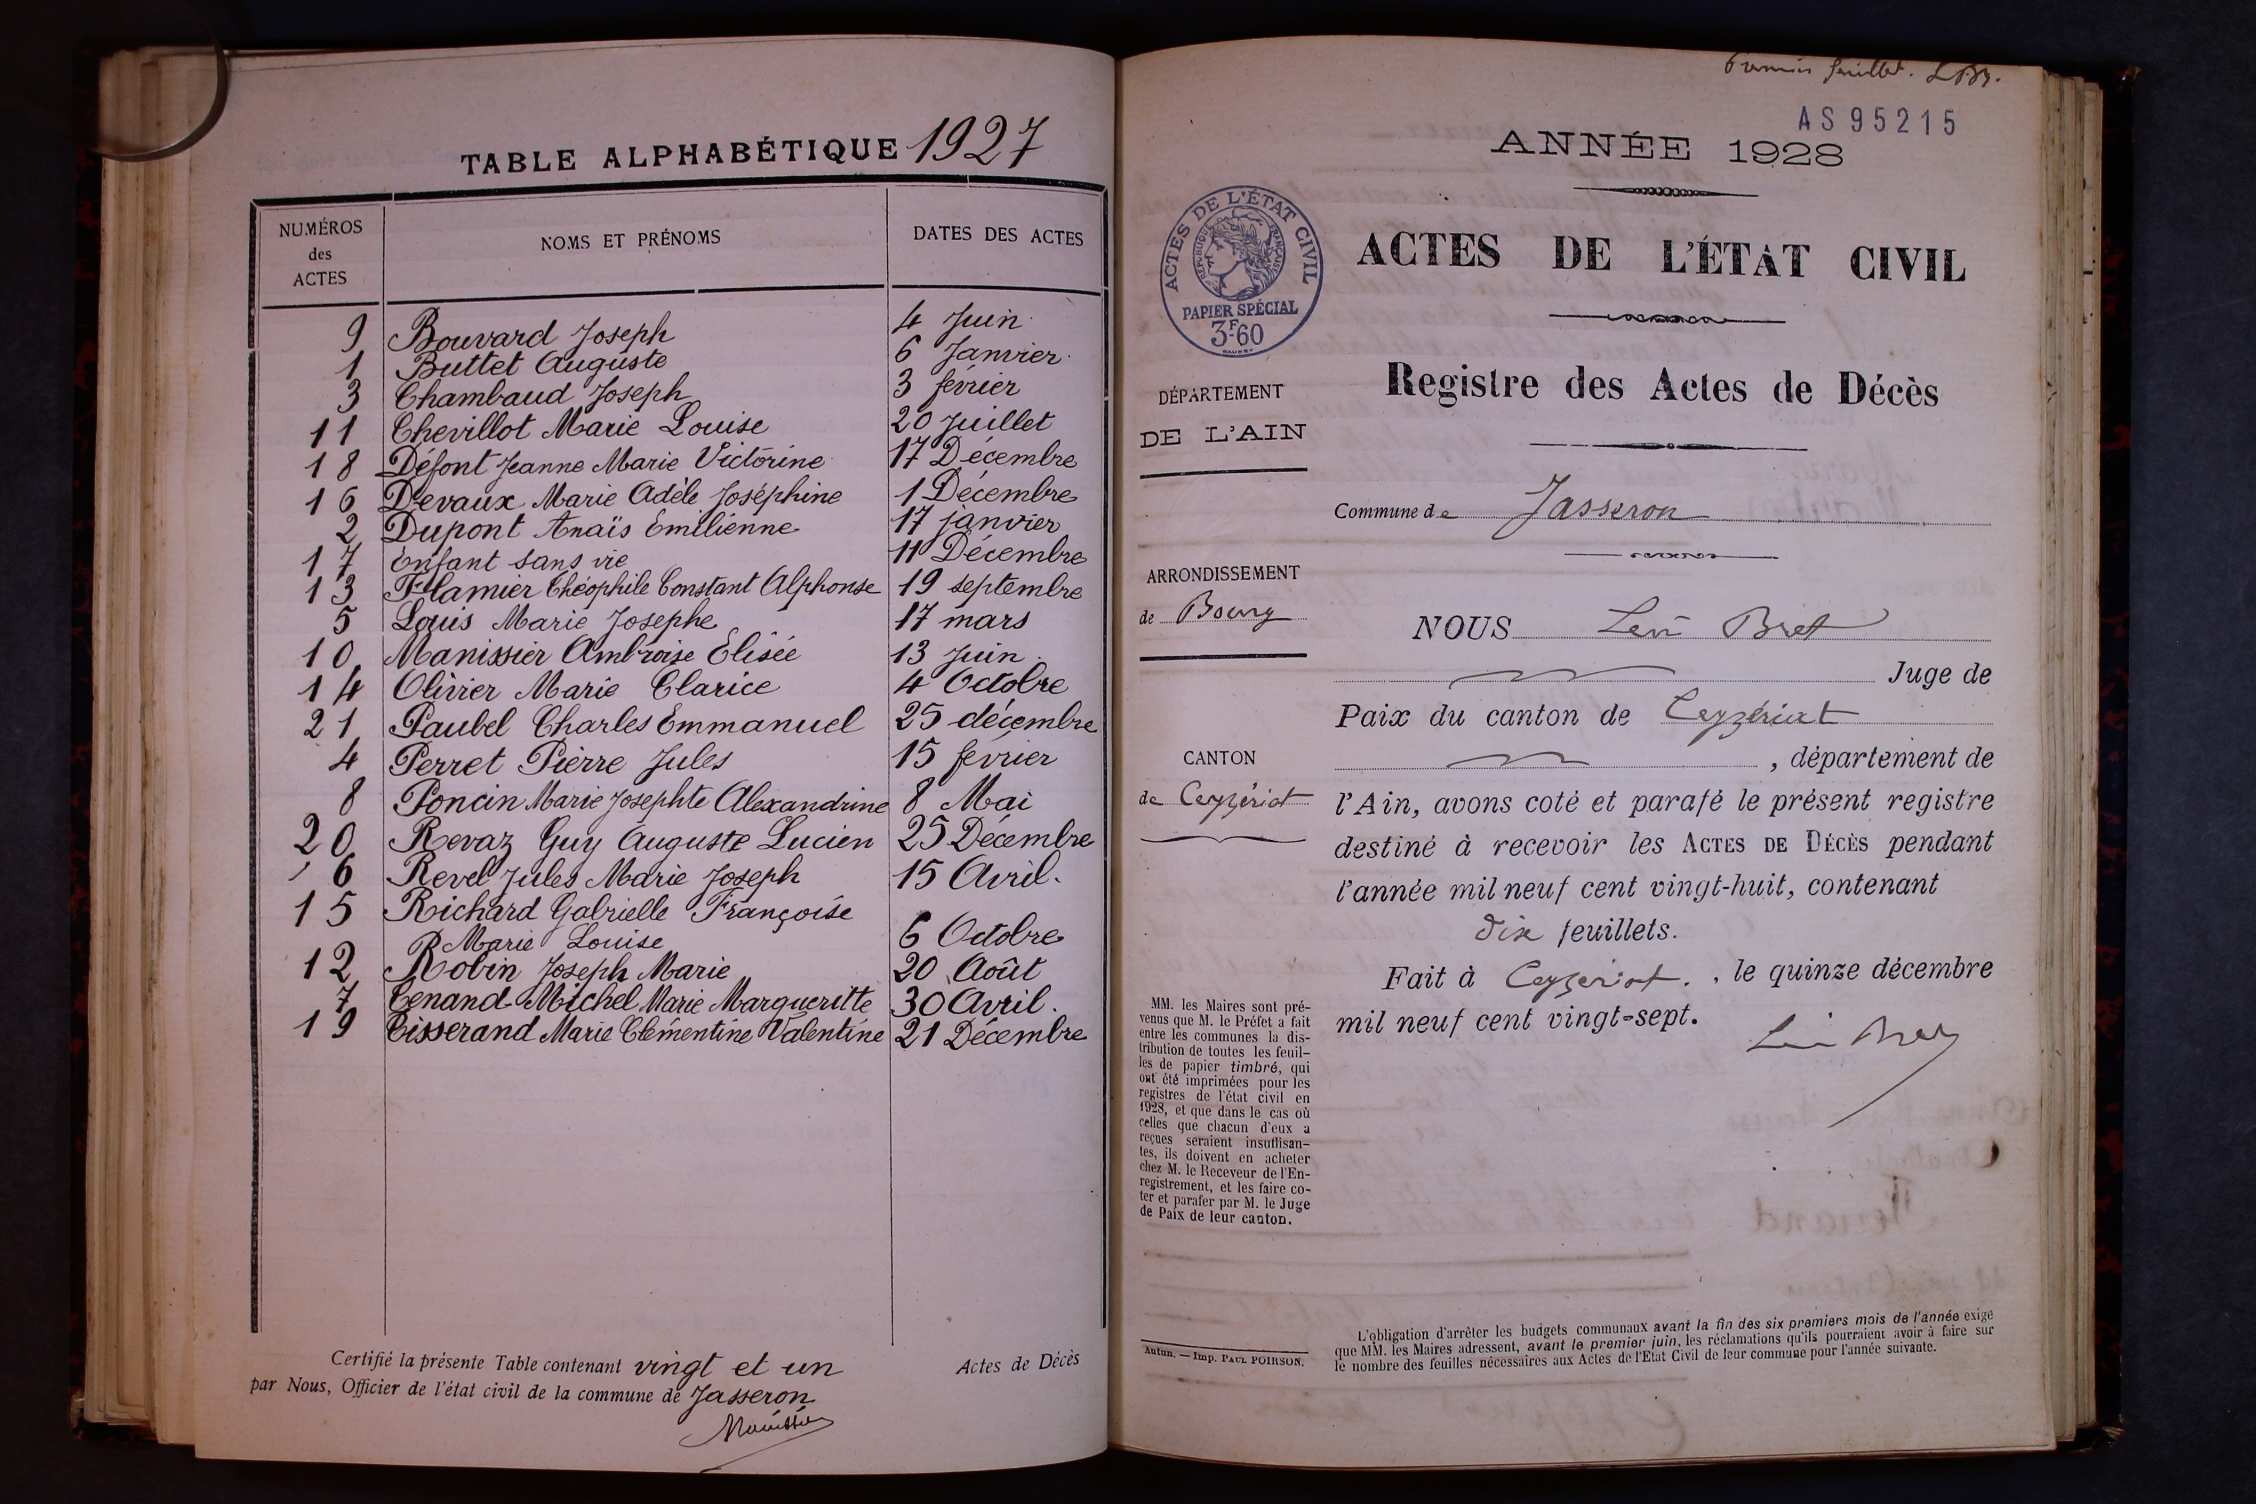 TABLE ALPHABÉTIQUE 1927
NUMÉROS des ACTES NOMS ET PRÉNOMS DATES DES ACTES
9 Bouvard Joseph 4 Juin
1 Buttet Auguste 6 Janvier
3 Chambaud Joseph 3 février
11 Chevillot Marie Louise 20 Juillet
18 Défont Jeanne Marie Victorine 17 Décembre
16 Devaux Marie Adèle Joséphine 1 Décembre
2 Dupont Anaïs Emilienne 17 janvier
17 Enfant sans vie 11 Décembre
13 Flamier Théophile Constant Alphonse 19 septembre
5 Louis Marie Josephe 17 mars
10 Manissier Ambroise Elisée 13 Juin
14 Olivier Marie Clarice 4 Octobre
21 Paubel Charles Emmanuel 25 décembre
4 Perret Pierre Jules 15 fevrier
8 Poncin Marie Josephte Alexandrine 8 Mai
20 Revaz Guy Auguste Lucien 25 Décembre
6 Revel Jules Marie Joseph 15 Avril.
15 Richard Gabrielle Françoise
Marie Louise 6 Octobre
12 Robin Joseph Marie 20 Août
7 Tenand Michel Marie Margueritte 30 Avril.
19 Tisserand Marie Clémentine Valentine 21 Décembre
Certifié la présente Table contenant vingt et un Actes de Décès
par Nous, Officier de l'état civil de la commune de Jasseron
Premier feuillet.
AS95215
ANNÉE 1928
ACTES DE L'ÉTAT CIVIL
RÉPUBLIQUE FRANÇAISE
PAPIER SPÉCIAL
3F60
ACTES DE L'ÉTAT CIVIL
Registre des Actes de Décès
DÉPARTEMENT
DE L'AIN
Commune de Jasseron
ARRONDISSEMENT
de Bourg
NOUS Léon Bret
Juge de
Paix du canton de Ceyzériat
CANTON
de Ceyzériat
, département de
l'Ain, avons coté et parafé le présent registre
destiné à recevoir les ACTES DE DÉCÈS pendant
l'année mil neuf cent vingt-huit, contenant
dix feuillets.
Fait à Ceyzeriat. , le quinze décembre
mil neuf cent vingt-sept.
MM. les Maires sont pré-
venus que M. le Préfet a fait
entre les communes la dis-
tribution de toutes les feuil-
les de papier timbré, qui
ont été imprimées pour les
registres de l'état civil en
1928, et que dans le cas où
celles que chacun d'eux a
reçues seraient insuffisan-
tes, ils doivent en acheter
chez M. le Receveur de l'En-
registrement, et les faire co-
ter et parafer par M. le Juge
de Paix de leur canton.
Autun. — Imp. PAUL POIRSON.
L'obligation d'arrêter les budgets communaux avant la fin des six premiers mois de l'année exige
que MM. les Maires adressent, avant le premier juin, les réclamations qu'ils pourraient avoir à faire sur
le nombre des feuilles nécessaires aux Actes de l'Etat Civil de leur commune pour l'année suivante.